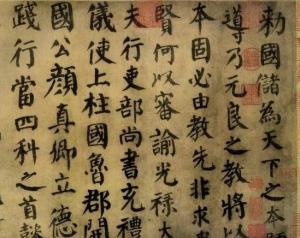 勅國儲為天下之本
導乃元良之教將以
本固必由教先非求
賢何以審諭光祿大
夫行吏部尚書充禮
儀使上柱國魯郡開
國公顏真卿立德
踐行當四科之首懿